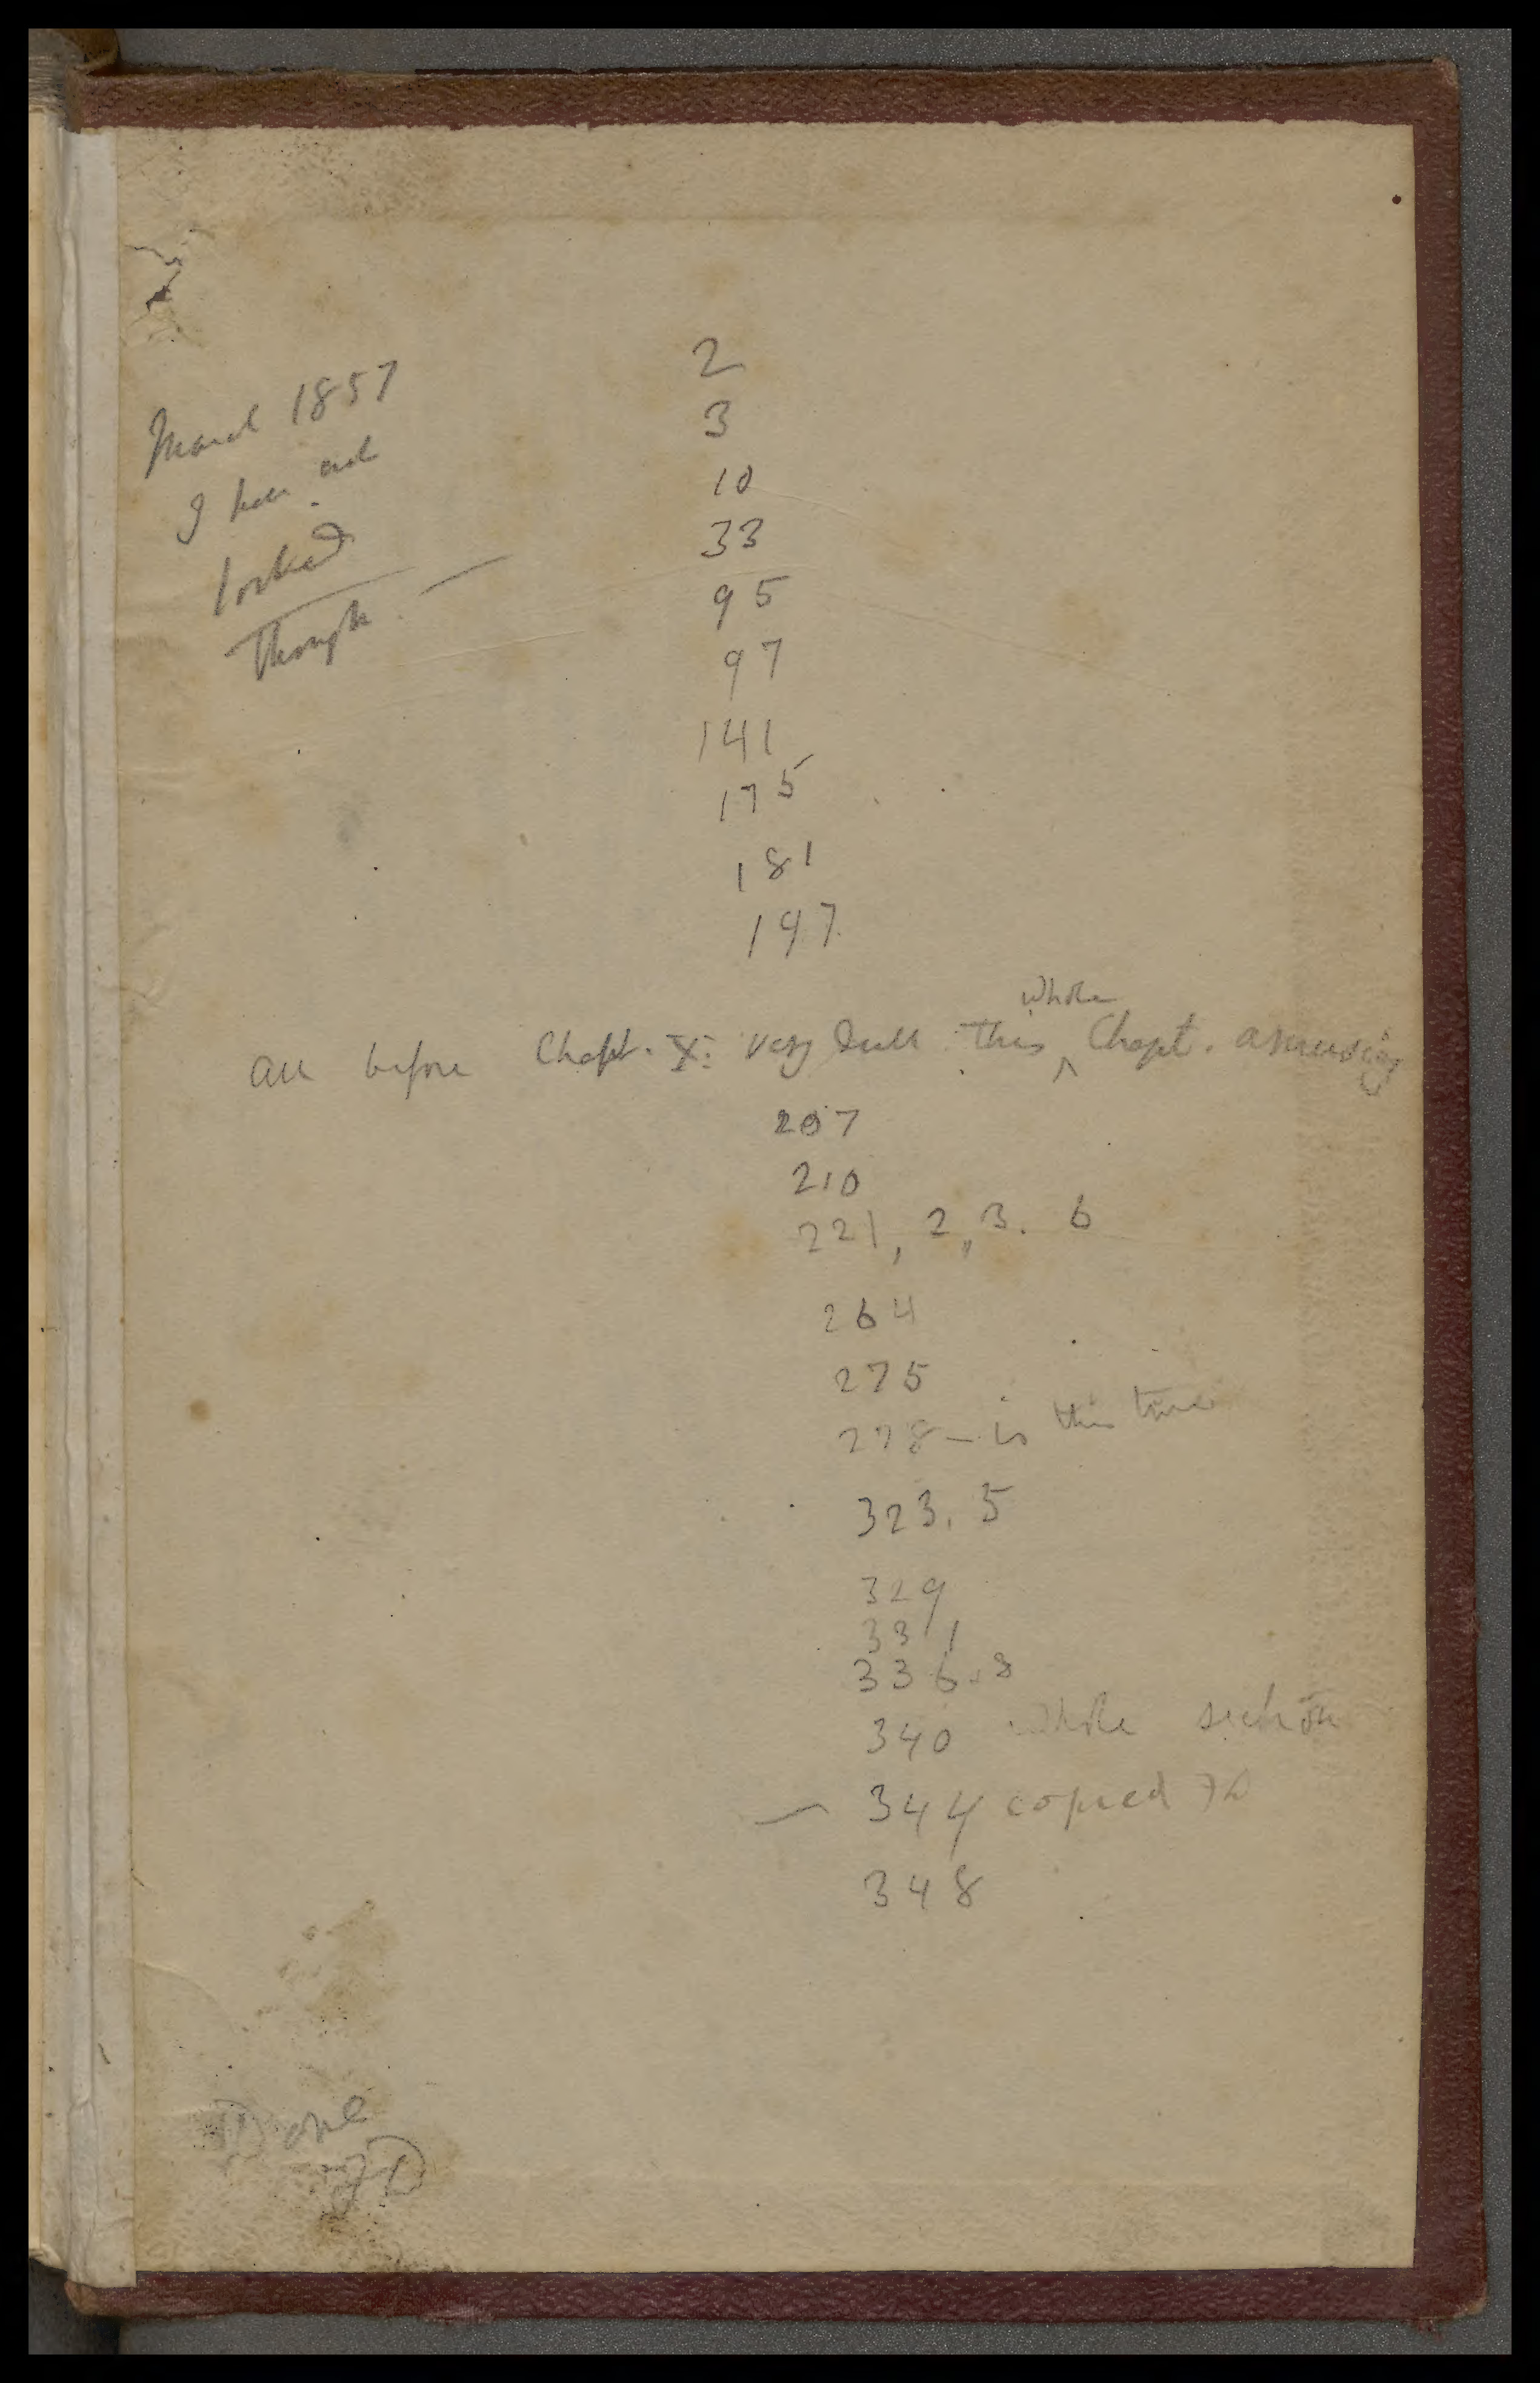 March 1857
I have not
looked
through
2
3
10
33
95
97
141
175
181
197
All before Chapt. X. very dull This whole Chapt. amusing
207
210
221, 2, 3. 6
264
275
278 — is this true
323. 5
329
331
336. 8
340 whole section
— 344 copied
348
Done